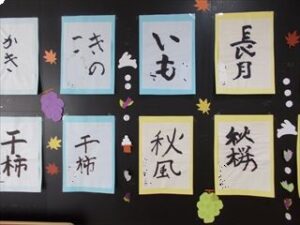 長月
いも
きのこ
かき
秋桜
秋風
干柿
干柿